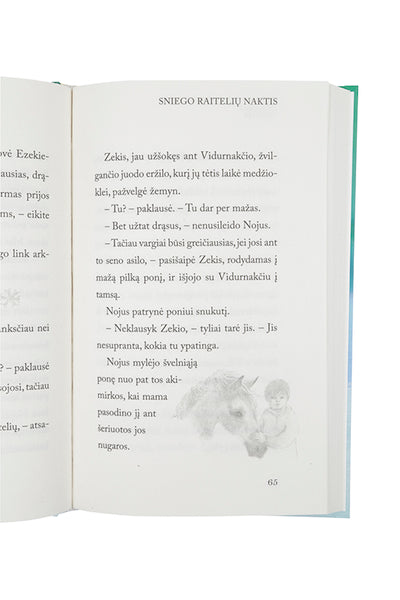 ovė Ezekie-
ausias, drą-
rmas prijos
ms, – eikite
go link ark-
nksčiau nei
? – paklausė
sojosi, tačiau
celių, – atsa-
SNIEGO RAITELIŲ NAKTIS
Zekis, jau užšokęs ant Vidurnakčio, žvil-
gančio juodo eržilo, kurį jų tėtis laikė medžio-
klei, pažvelgė žemyn.
– Tu? – paklausė. – Tu dar per mažas.
– Bet užtat drąsus, – nenusileido Nojus.
– Tačiau vargiai būsi greičiausias, jei josi ant
to seno asilo, – pasišaipė Zekis, rodydamas į
mažą pilką ponį, ir išjojo su Vidurnakčiu į
tamsą.
Nojus patrynė poniui snukutį.
– Neklausyk Zekio, – tyliai tarė jis. – Jis
nesupranta, kokia tu ypatinga.
Nojus mylėjo švelniąją
ponę nuo pat tos aki-
mirkos, kai mama
pasodino jį ant
šeriuotos jos
nugaros.
65